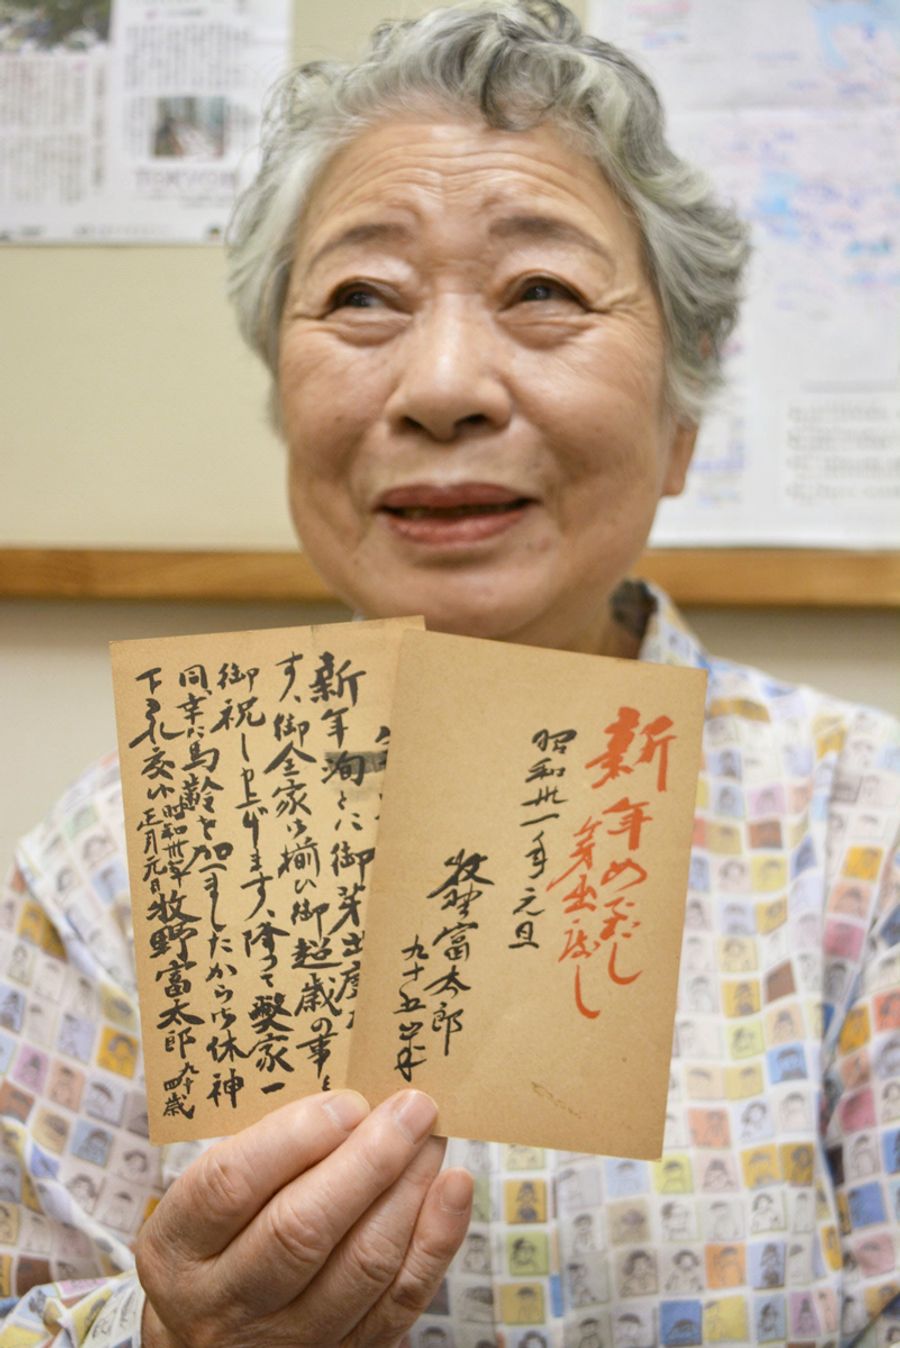 新年めでたし
芽出度し
昭和卅一年元旦
牧野富太郎
九十五歳
新年洵とに御芽出度
す、御全家御揃ひ御超歳の事と
御祝し申上げます、降って弊家一
同、幸に馬齢を加へましたから御休神
下され度候
昭和卅年
正月元日
牧野富太郎
九十四歳